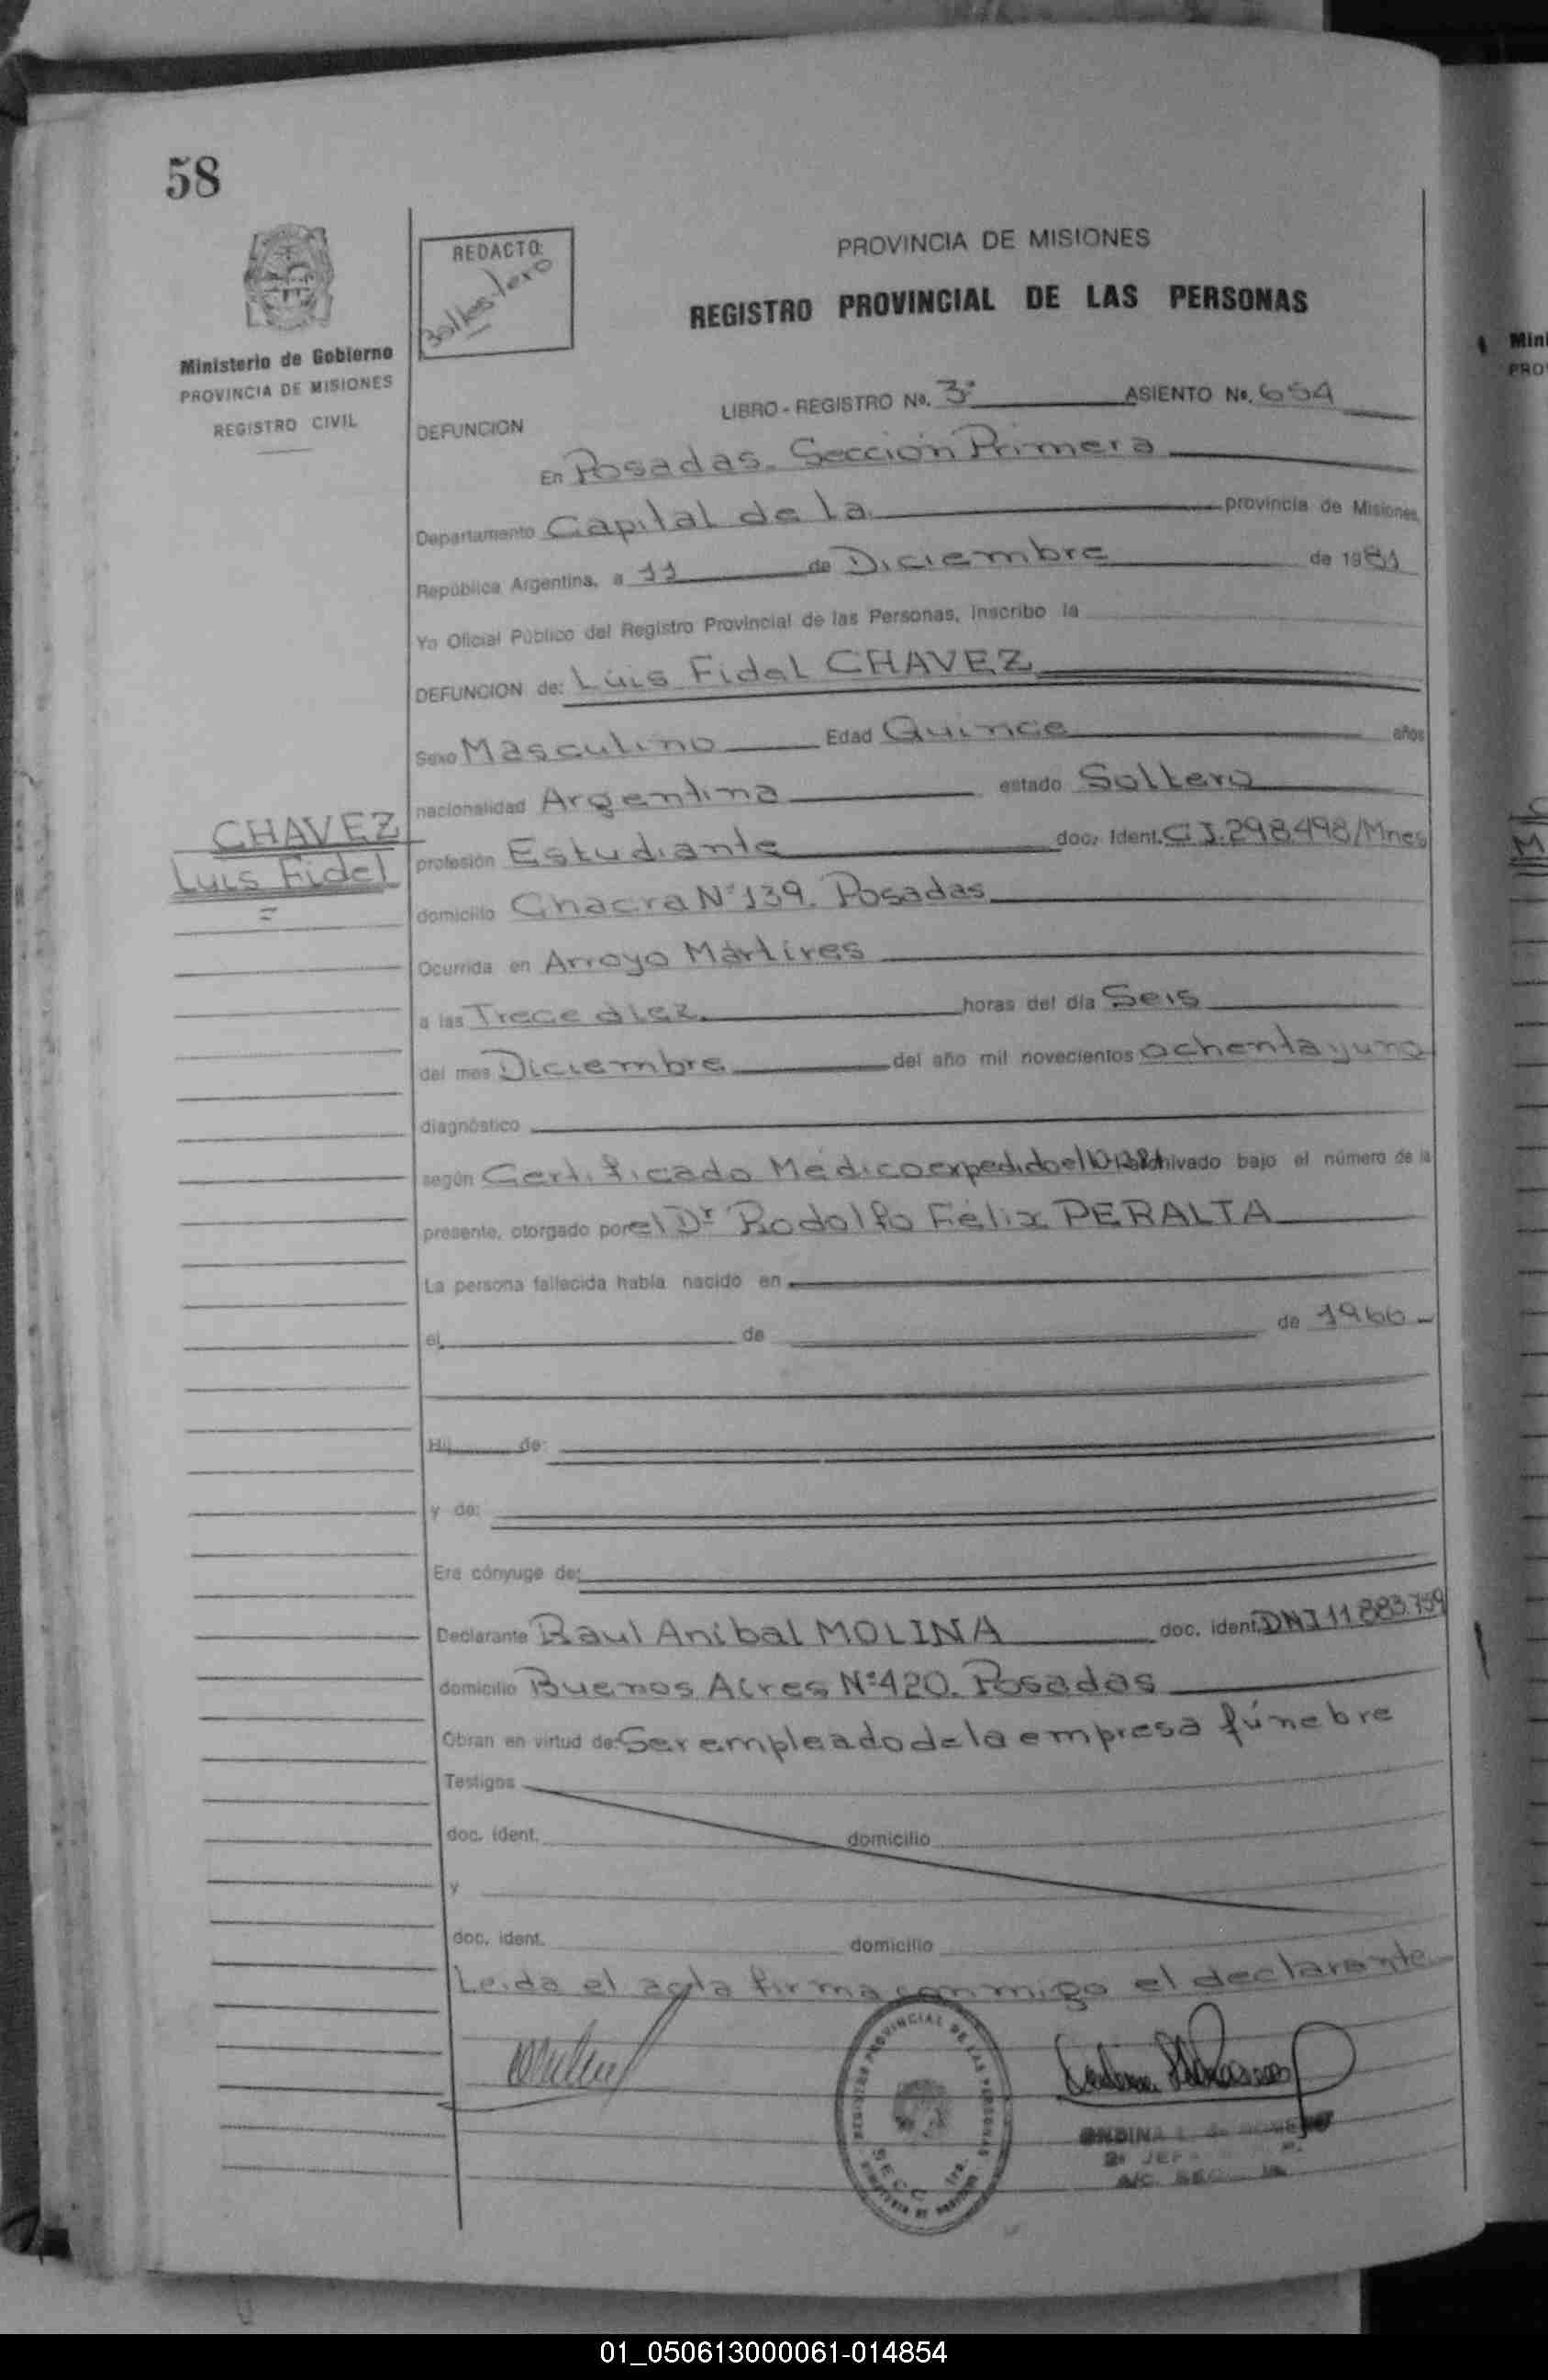 58
REDACTO:
Ballestero
PROVINCIA DE MISIONES
REGISTRO PROVINCIAL DE LAS PERSONAS
Ministerio de Gobierno
PROVINCIA DE MISIONES
REGISTRO CIVIL
LIBRO - REGISTRO No. 3º ASIENTO No. 654
DEFUNCION
En Posadas. Sección Primera
Departamento Capital de la provincia de Misiones,
República Argentina, a 11 de Diciembre de 1981
Yo Oficial Público del Registro Provincial de las Personas, inscribo la
DEFUNCION de: Luis Fidel CHAVEZ
Sexo Masculino Edad Quince años
nacionalidad Argentina estado Soltero
CHAVEZ
Luis Fidel
=
profesión Estudiante doc. Ident. C.I. 298.498/Mnes
domicilio Chacra Nº 139. Posadas
Ocurrida en Arroyo Mártires
a las Trece diez horas del día Seis
del mes Diciembre del año mil novecientos ochenta y uno
diagnóstico
según Certificado Médico expedido el 10-12-81 archivado bajo el número de la
presente, otorgado por el Dr Rodolfo Félix PERALTA
La persona fallecida había nacido en
el de de 1966
Hij de:
y de:
Era cónyuge de:
Declarante Raul Anibal MOLINA doc. ident. DNI 11.883.759
domicilio Buenos Aires Nº 420. Posadas
Obran en virtud de: Ser empleado de la empresa fúnebre
Testigos
doc. ident. domicilio
y
doc. ident. domicilio
Leida el acta firma conmigo el declarante
REGISTRO PROVINCIAL DE LAS PERSONAS
SECC. 1ra.
01_050613000061-014854